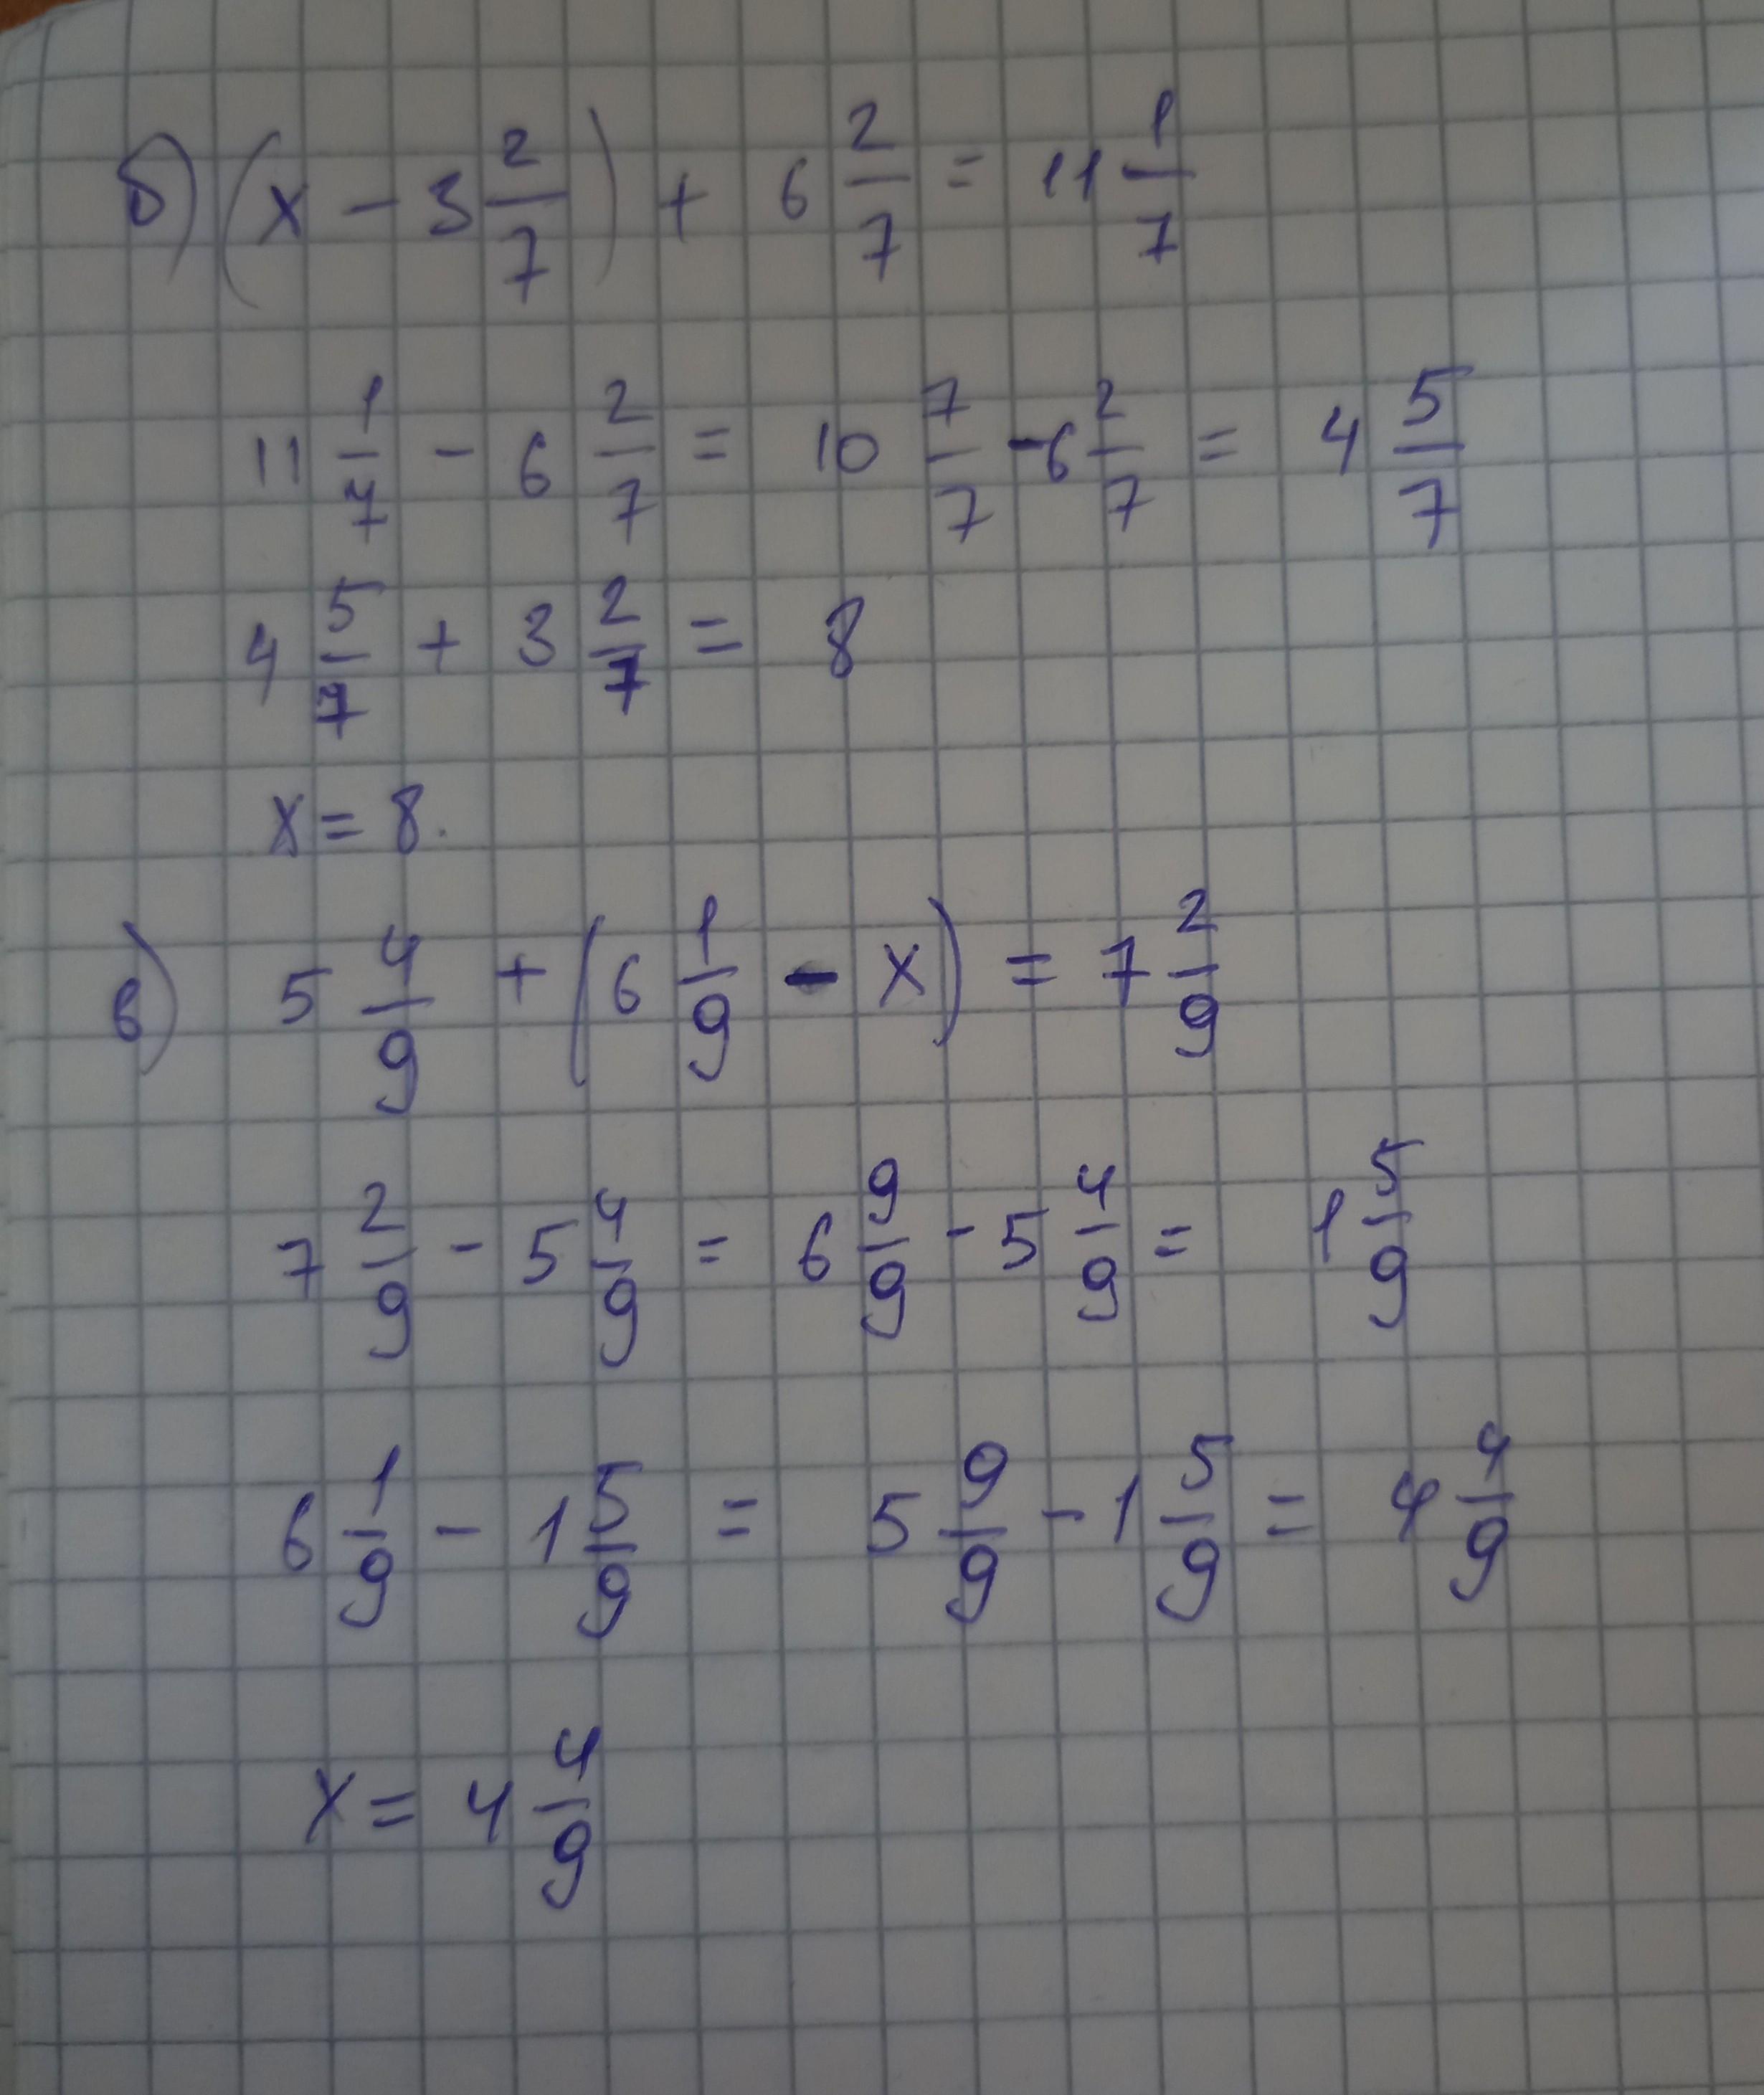 б) (x - 3 2/7) + 6 2/7 = 11 1/7
11 1/7 - 6 2/7 = 10 7/7 - 6 2/7 = 4 5/7
4 5/7 + 3 2/7 = 8
x = 8.
в) 5 4/9 + (6 1/9 - x) = 7 2/9
7 2/9 - 5 4/9 = 6 9/9 - 5 4/9 = 1 5/9
6 1/9 - 1 5/9 = 5 9/9 - 1 5/9 = 4 4/9
x = 4 4/9